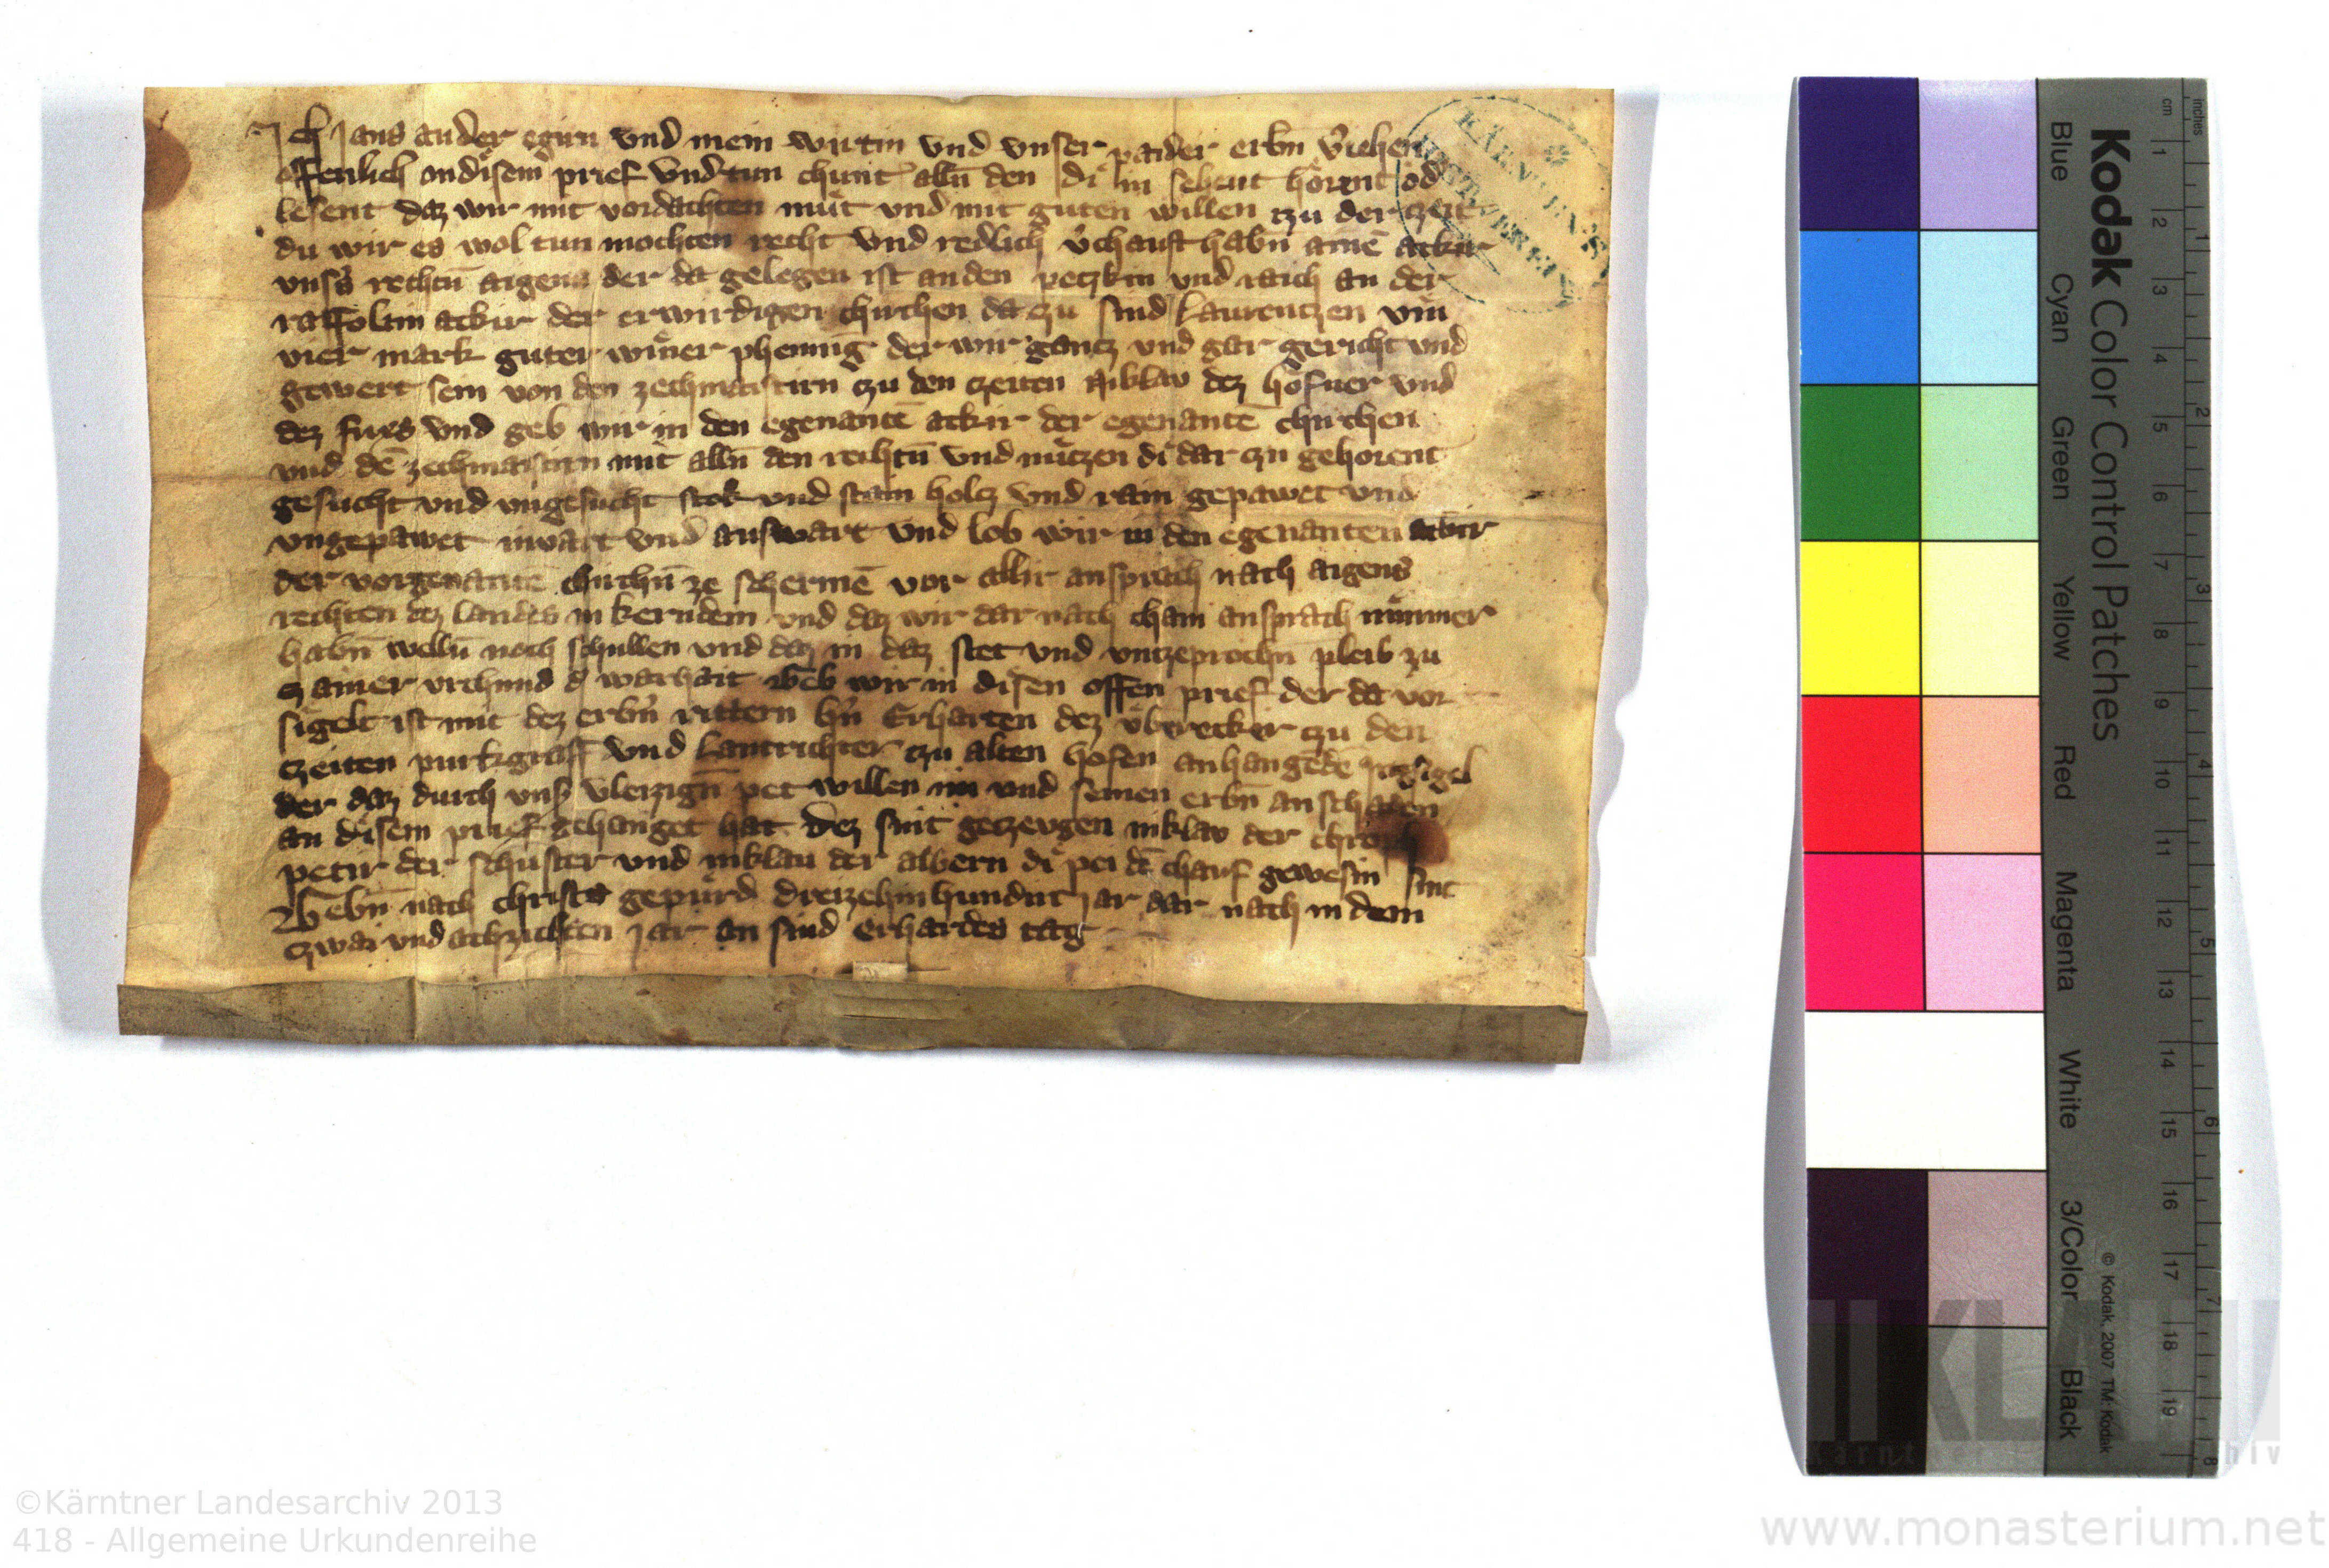 Ich Jans an der egirn vnd mein wirtin vnd vnser paider erbn̄ v̓iehen
offenlich an disem prief vnd tun chunt alln̄ den di in sehent hörent od̓
lesent daz wir mit vordachten müt vnd mit guten willen czu der czeit
du wir es wol tun mochten recht vnd redlich v̓chauft habn̄ ainē akkir
vnsˢ rechtn̄ aigens der da gelegen ist an den peczkin vnd raich an der
raffoltin akkir der erwirdigen chirchen da czu sand Laurenczen vm̄
vier mark guter winer phennig der wir gancz vnd gar gericht vnd
gewert sein von den zechmaistirn czu den czeiten Niklav dez hofner vnd
dez fuxs vnd geb wir in den egenantē akkir der egenantē chirchen
vnd dē zechmaistirn mit alln̄ den rechtn̄ vnd nützen di dar zu gehorent
gesucht vnd vngesucht stok vnd stain holcz vnd rain gepawet vnd
vngepawet inwart vnd auswart vnd lob wir in den egenanten akkir
der vorgenantē chirchn̄ ze schermē vor allir ansprach nach aigens
rechten dez landes in kernden vnd daz wir dar nach chain ansprach nimmer
habn̄ welln̄ noch schullen vnd daz in daz stet vnd vnczeprochn̄ pleib zu
czainer vrchund d̓ warhait Geb wir in disen offen prief der da vor
sigelt ist mit dez erbn̓ rittern hn̓ Erharten dez v̈brecker czu den
czeiten purkgraff vnd Lantrichter czu alten hofen anhangēdē Insigel
der daz durch vnsˢ vleizign̄ pet willen im vnd seinen erbn̄ an schaden
an disem prief gehanget hat Dez sint geczeugen niklav der
petir der schuster vnd niklau der albern di pei dē chauf gewesin sint
Gebn̄ nach christs gepürd dreizehin hundirt jar dar nach in dem
czwai vnd achzichten jar an sand Erhardes tag
Kodak Color Control Patches
Blue Cyan Green Yellow Red Magenta White 3/Color Black
© Kodak, 2007 TM: Kodak
cm 1 2 3 4 5 6 7 8 9 10 11 12 13 14 15 16 17 18 19
inches 1 2 3 4 5 6 7 8
©Kärntner Landesarchiv 2013
418 - Allgemeine Urkundenreihe
www.monasterium.net